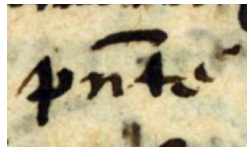 pn̄te